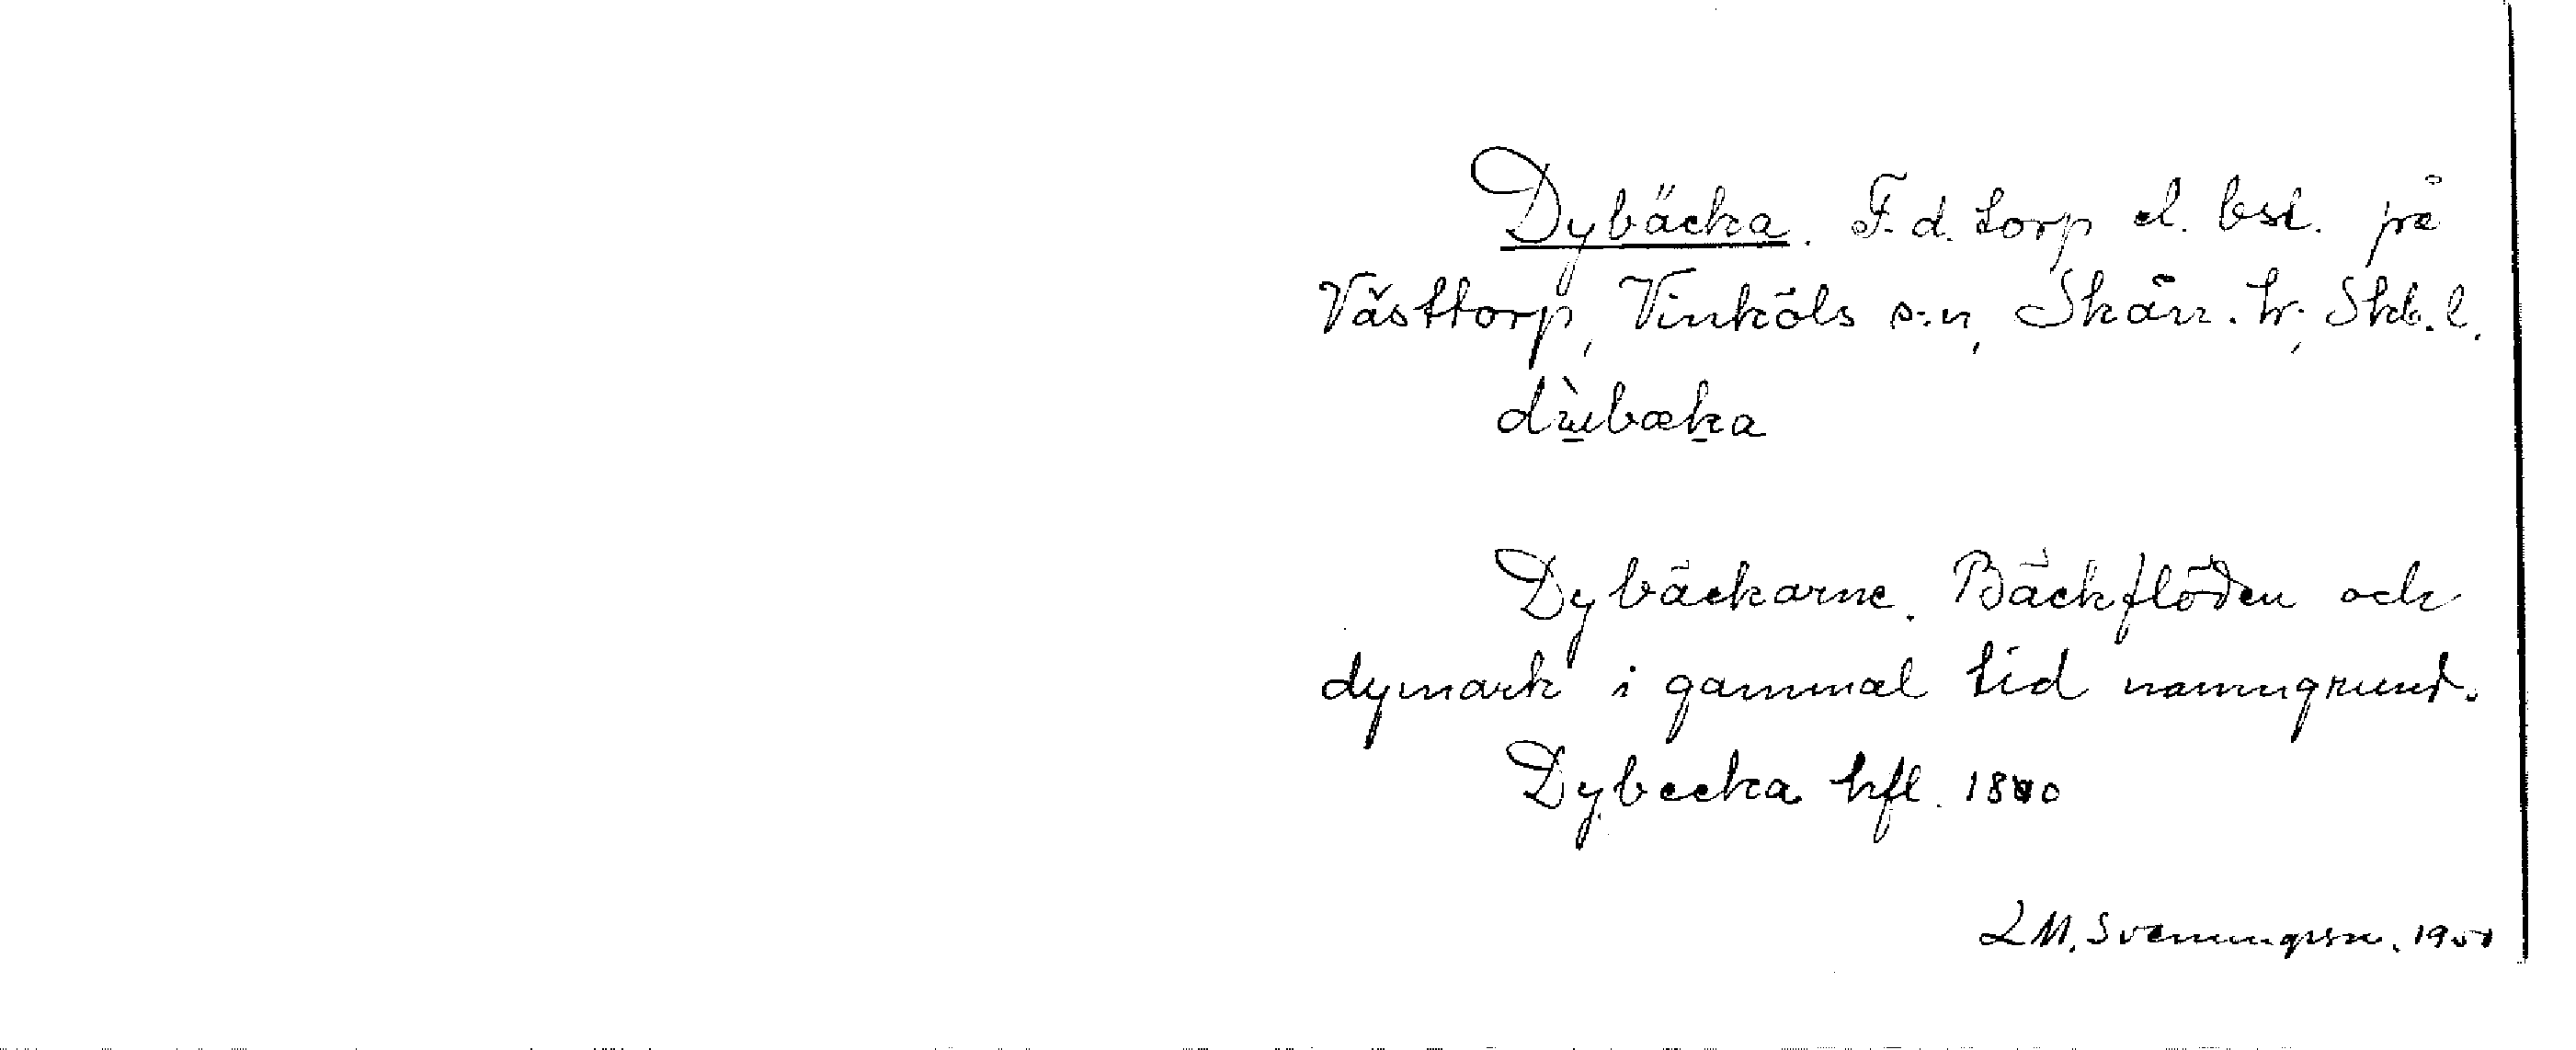 Dybäcka. F. d. torp el. bst. på
Västtorp, Vinköls s:n, Skån. hr, Skb. l.
Dybäckarne. Bäckflöden och
dymark i gammal tid namngrund.
Dybecka hfl. 18
L M. Svenungsson. 1951